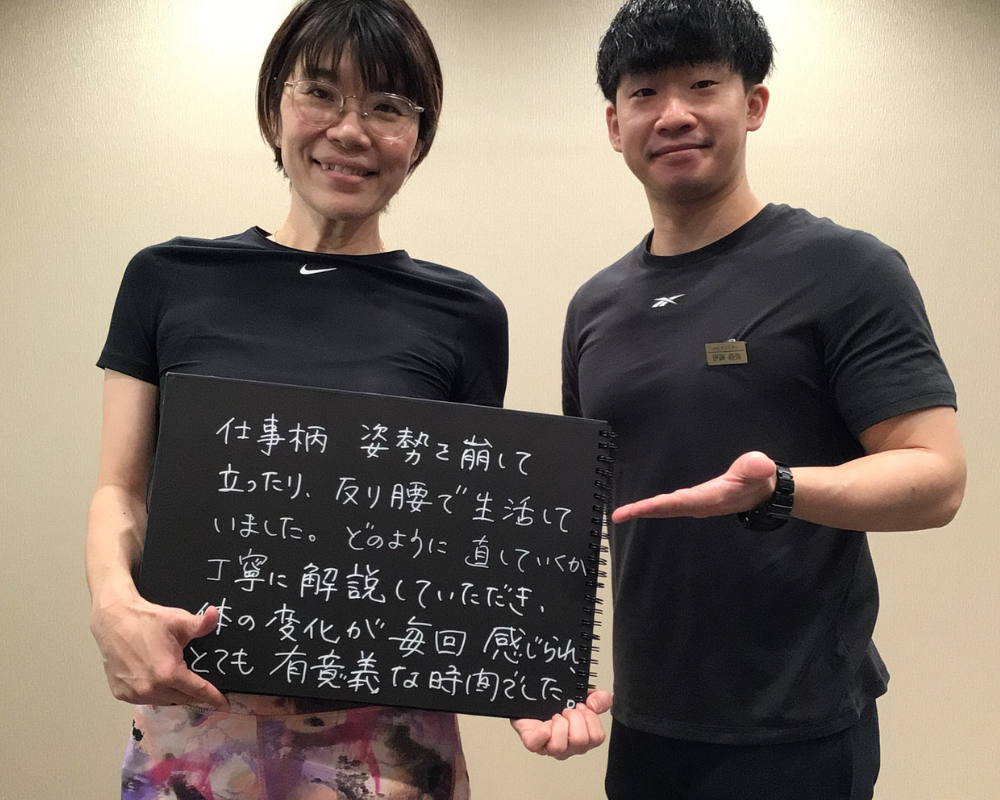 仕事柄 姿勢を崩して
立ったり、反り腰で生活して
いました。どのように直していくか
丁寧に解説していただき、
体の変化が毎回感じられ、
とても有意義な時間でした。